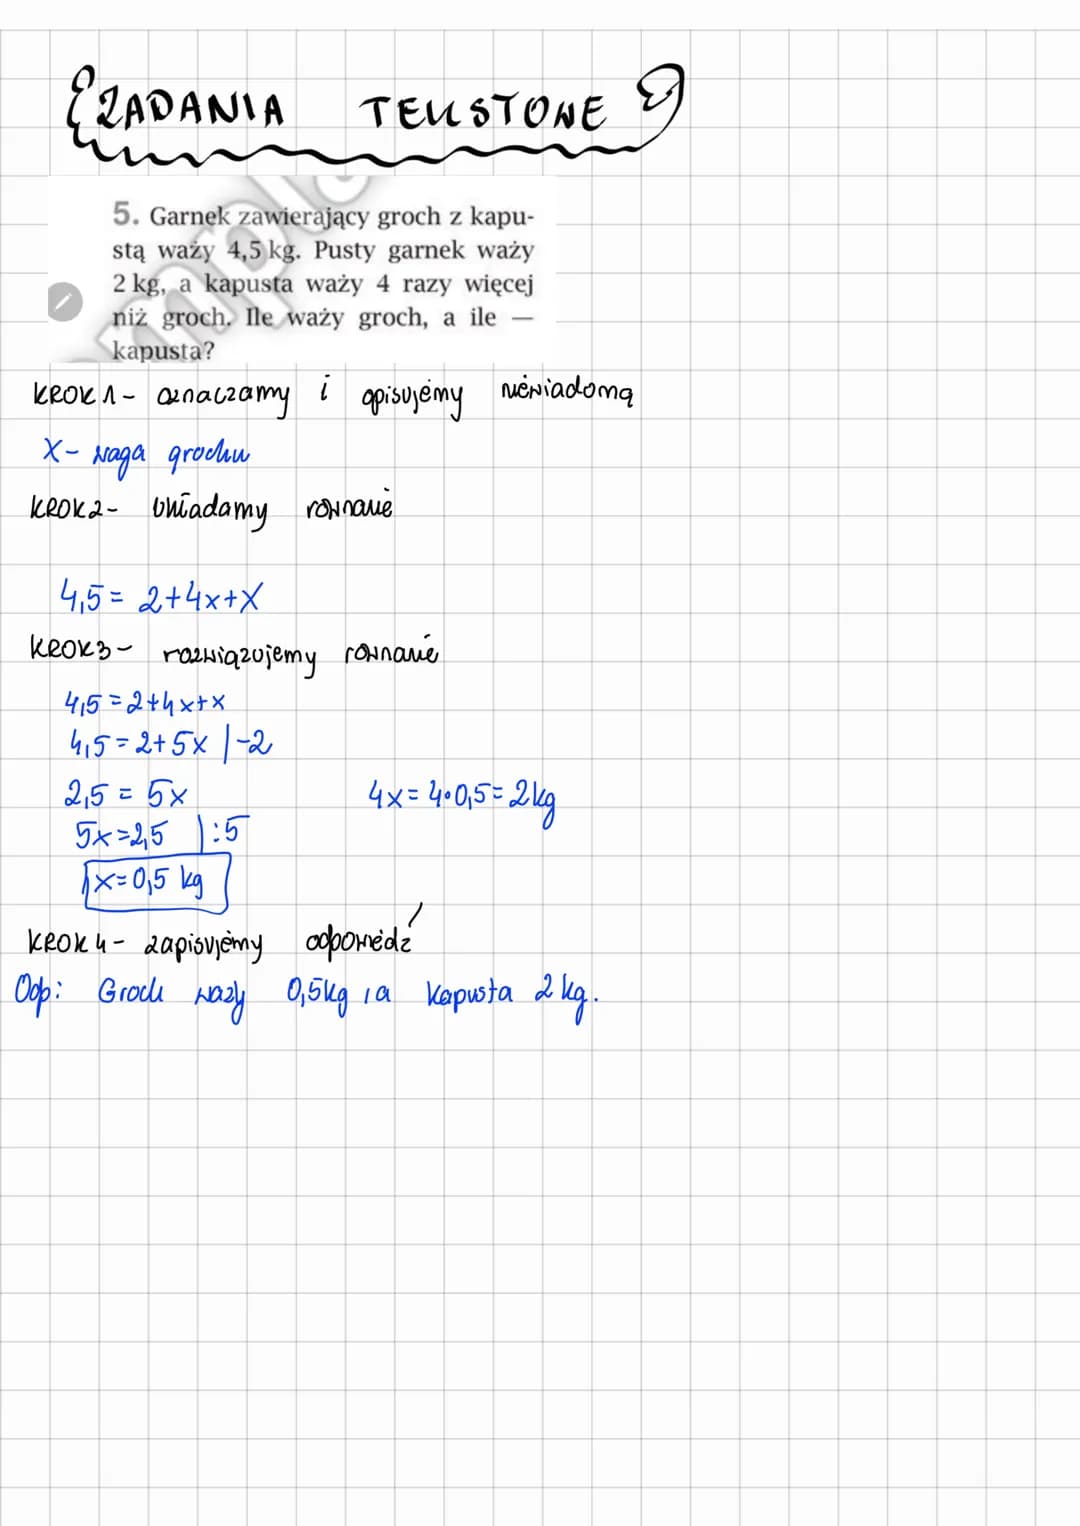 ZADANIA TEKSTOWE
5. Garnek zawierający groch z kapu-
stą waży 4,5 kg. Pusty garnek waży
2 kg, a kapusta waży 4 razy więcej
niż groch. Ile waży groch, a ile —
kapusta?
KROK 1- oznaczamy i opisujemy niewiadomą
X- waga grochu
KROK 2- układamy równanie
4,5 = 2+4x+x
KROK 3- rozwiązujemy równanie
4,5 = 2+4x+x
4,5 = 2+5x |-2
2,5 = 5x
4x = 4·0,5 = 2kg
5x = 2,5 |:5
x = 0,5 kg
KROK 4- zapisujemy odpowiedź
Odp: Groch waży 0,5kg, a kapusta 2 kg.